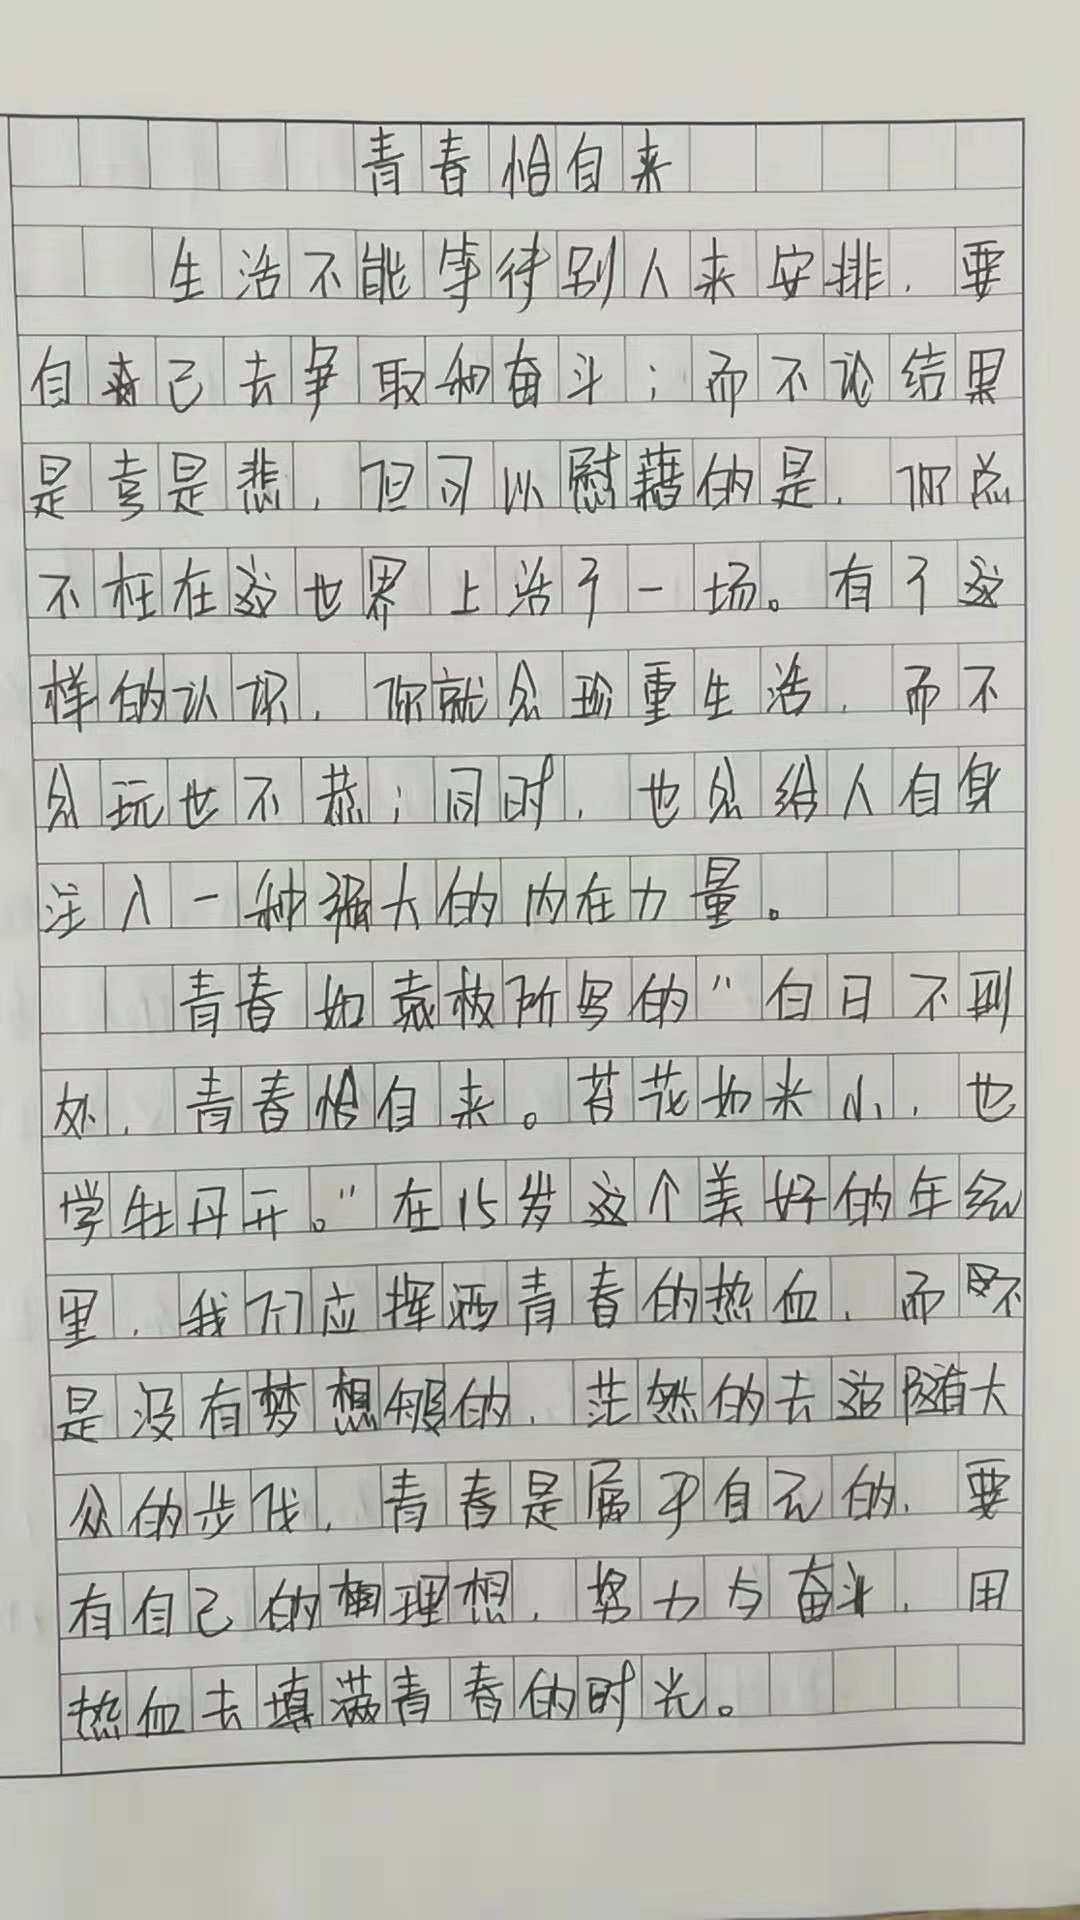 青春恰自来
生活不能等待别人来安排，要
自己去争取和奋斗；而不论结果
是喜是悲，但可以慰藉的是，你总
不枉在这世界上活了一场。有了这
样的认识，你就会珍重生活，而不
会玩世不恭；同时，也会给人自身
注入一种强大的内在力量。
青春如袁枚所写的"白日不到
处，青春恰自来。苔花如米小，也
学牡丹开。"在15岁这个美好的年纪
里，我们应挥洒青春的热血，而不
是没有梦想的，茫然的去追随大
众的步伐，青春是属于自己的，要
有自己的理想，努力与奋斗，用
热血去填满青春的时光。